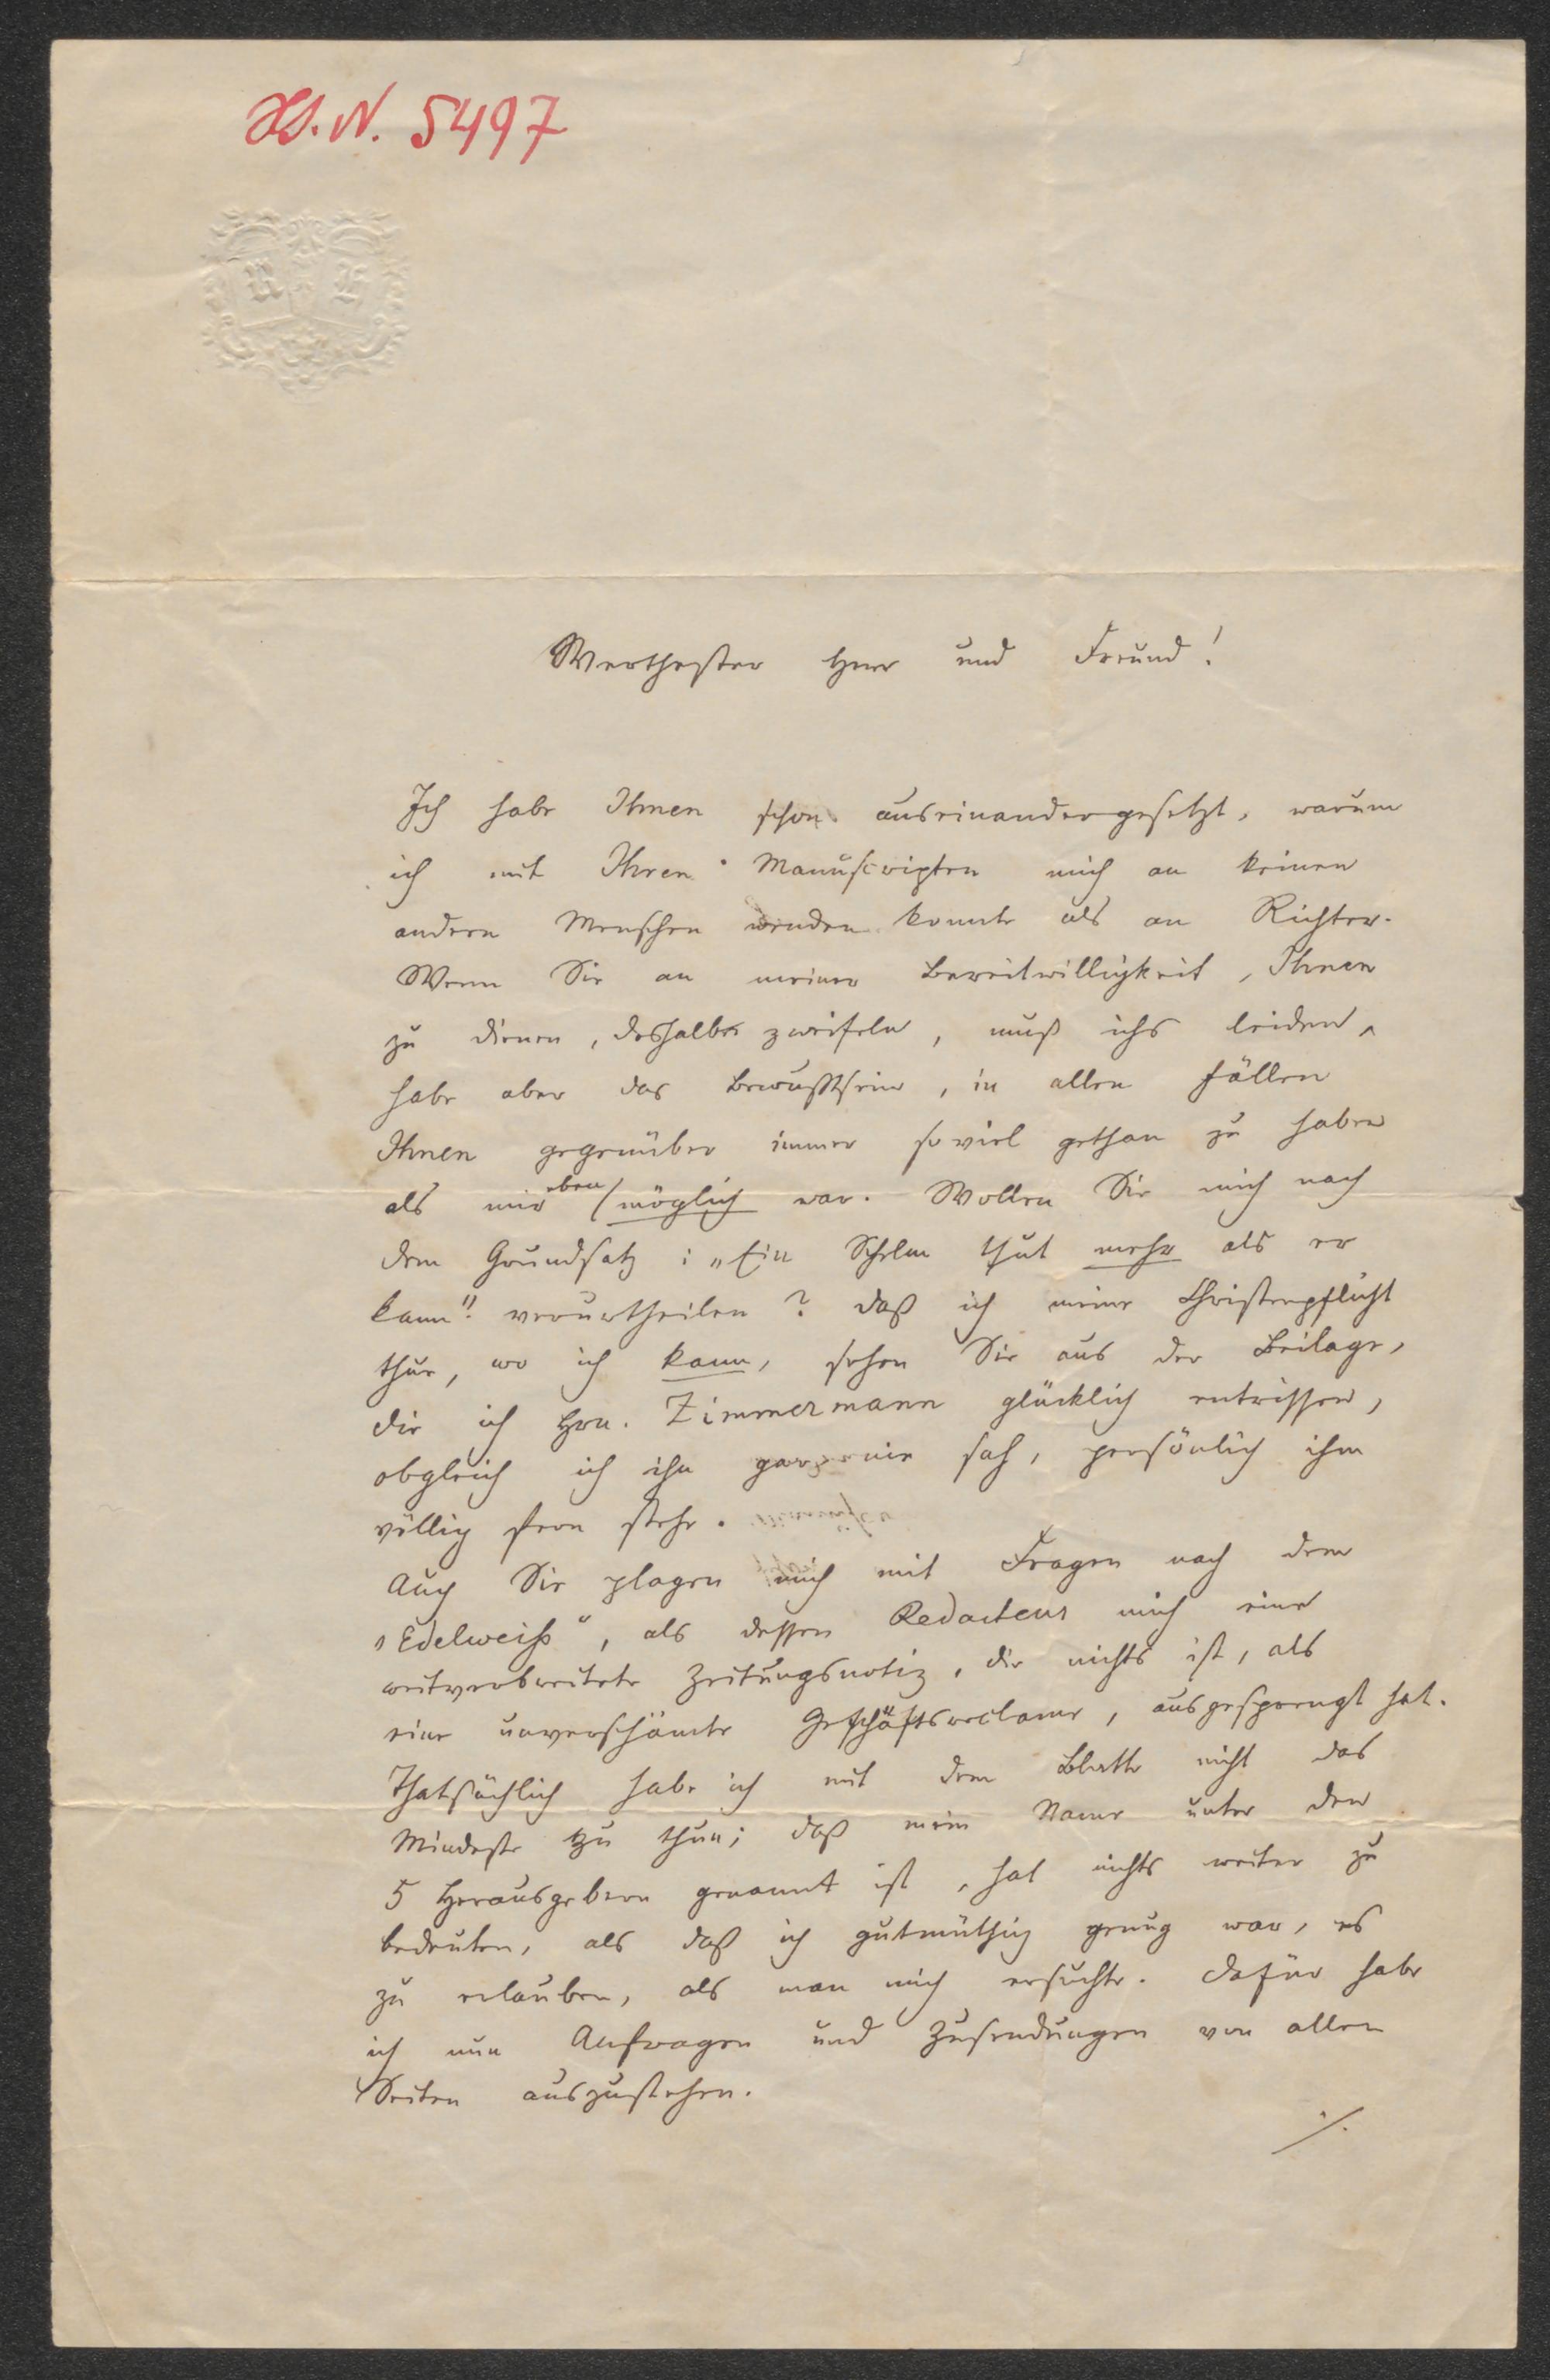 Hs. N. 5497
Werthester Herr und Freund!
Ich habe Ihnen schon auseinandergesetzt, warum
ich mit Ihren Manuscripten mich an keinen
andern Menschen wenden konnte als an Richter.
Wenn Sie an meiner Bereitwilligkeit, Ihnen
zu dienen, deshalb zweifeln, muß ichs leiden,
habe aber das Bewußtsein, in allen Fällen
Ihnen gegenüber immer soviel gethan zu haben
als mir eben möglich war. Wollen Sie mich nach
dem Grundsatz: „Ein Schelm thut mehr als er
kann“ verurtheilen? Daß ich meine Christenpflicht
thue, wo ich kann, sehen Sie aus der Beilage,
die ich Hrn. Zimmermann glücklich entrissen,
obgleich ich ihn gar nie sah, persönlich ihm
völlig fern stehe.
Auch Sie plagen mich mit Fragen nach dem
„Edelweiß“, als dessen Redacteur mich eine
weitverbreitete Zeitungsnotiz, die nichts ist, als
eine unverschämte Geschäftsreclame, ausgesprengt hat.
Thatsächlich habe ich mit dem Blatte nicht das
Mindeste zu thun; daß mein Name unter den
5 Herausgebern genannt ist, hat nichts weiter zu
bedeuten, als daß ich gutmüthig genug war, es
zu erlauben, als man mich ersuchte. Dafür habe
ich nun Anfragen und Zusendungen von allen
Seiten auszustehen.
./.